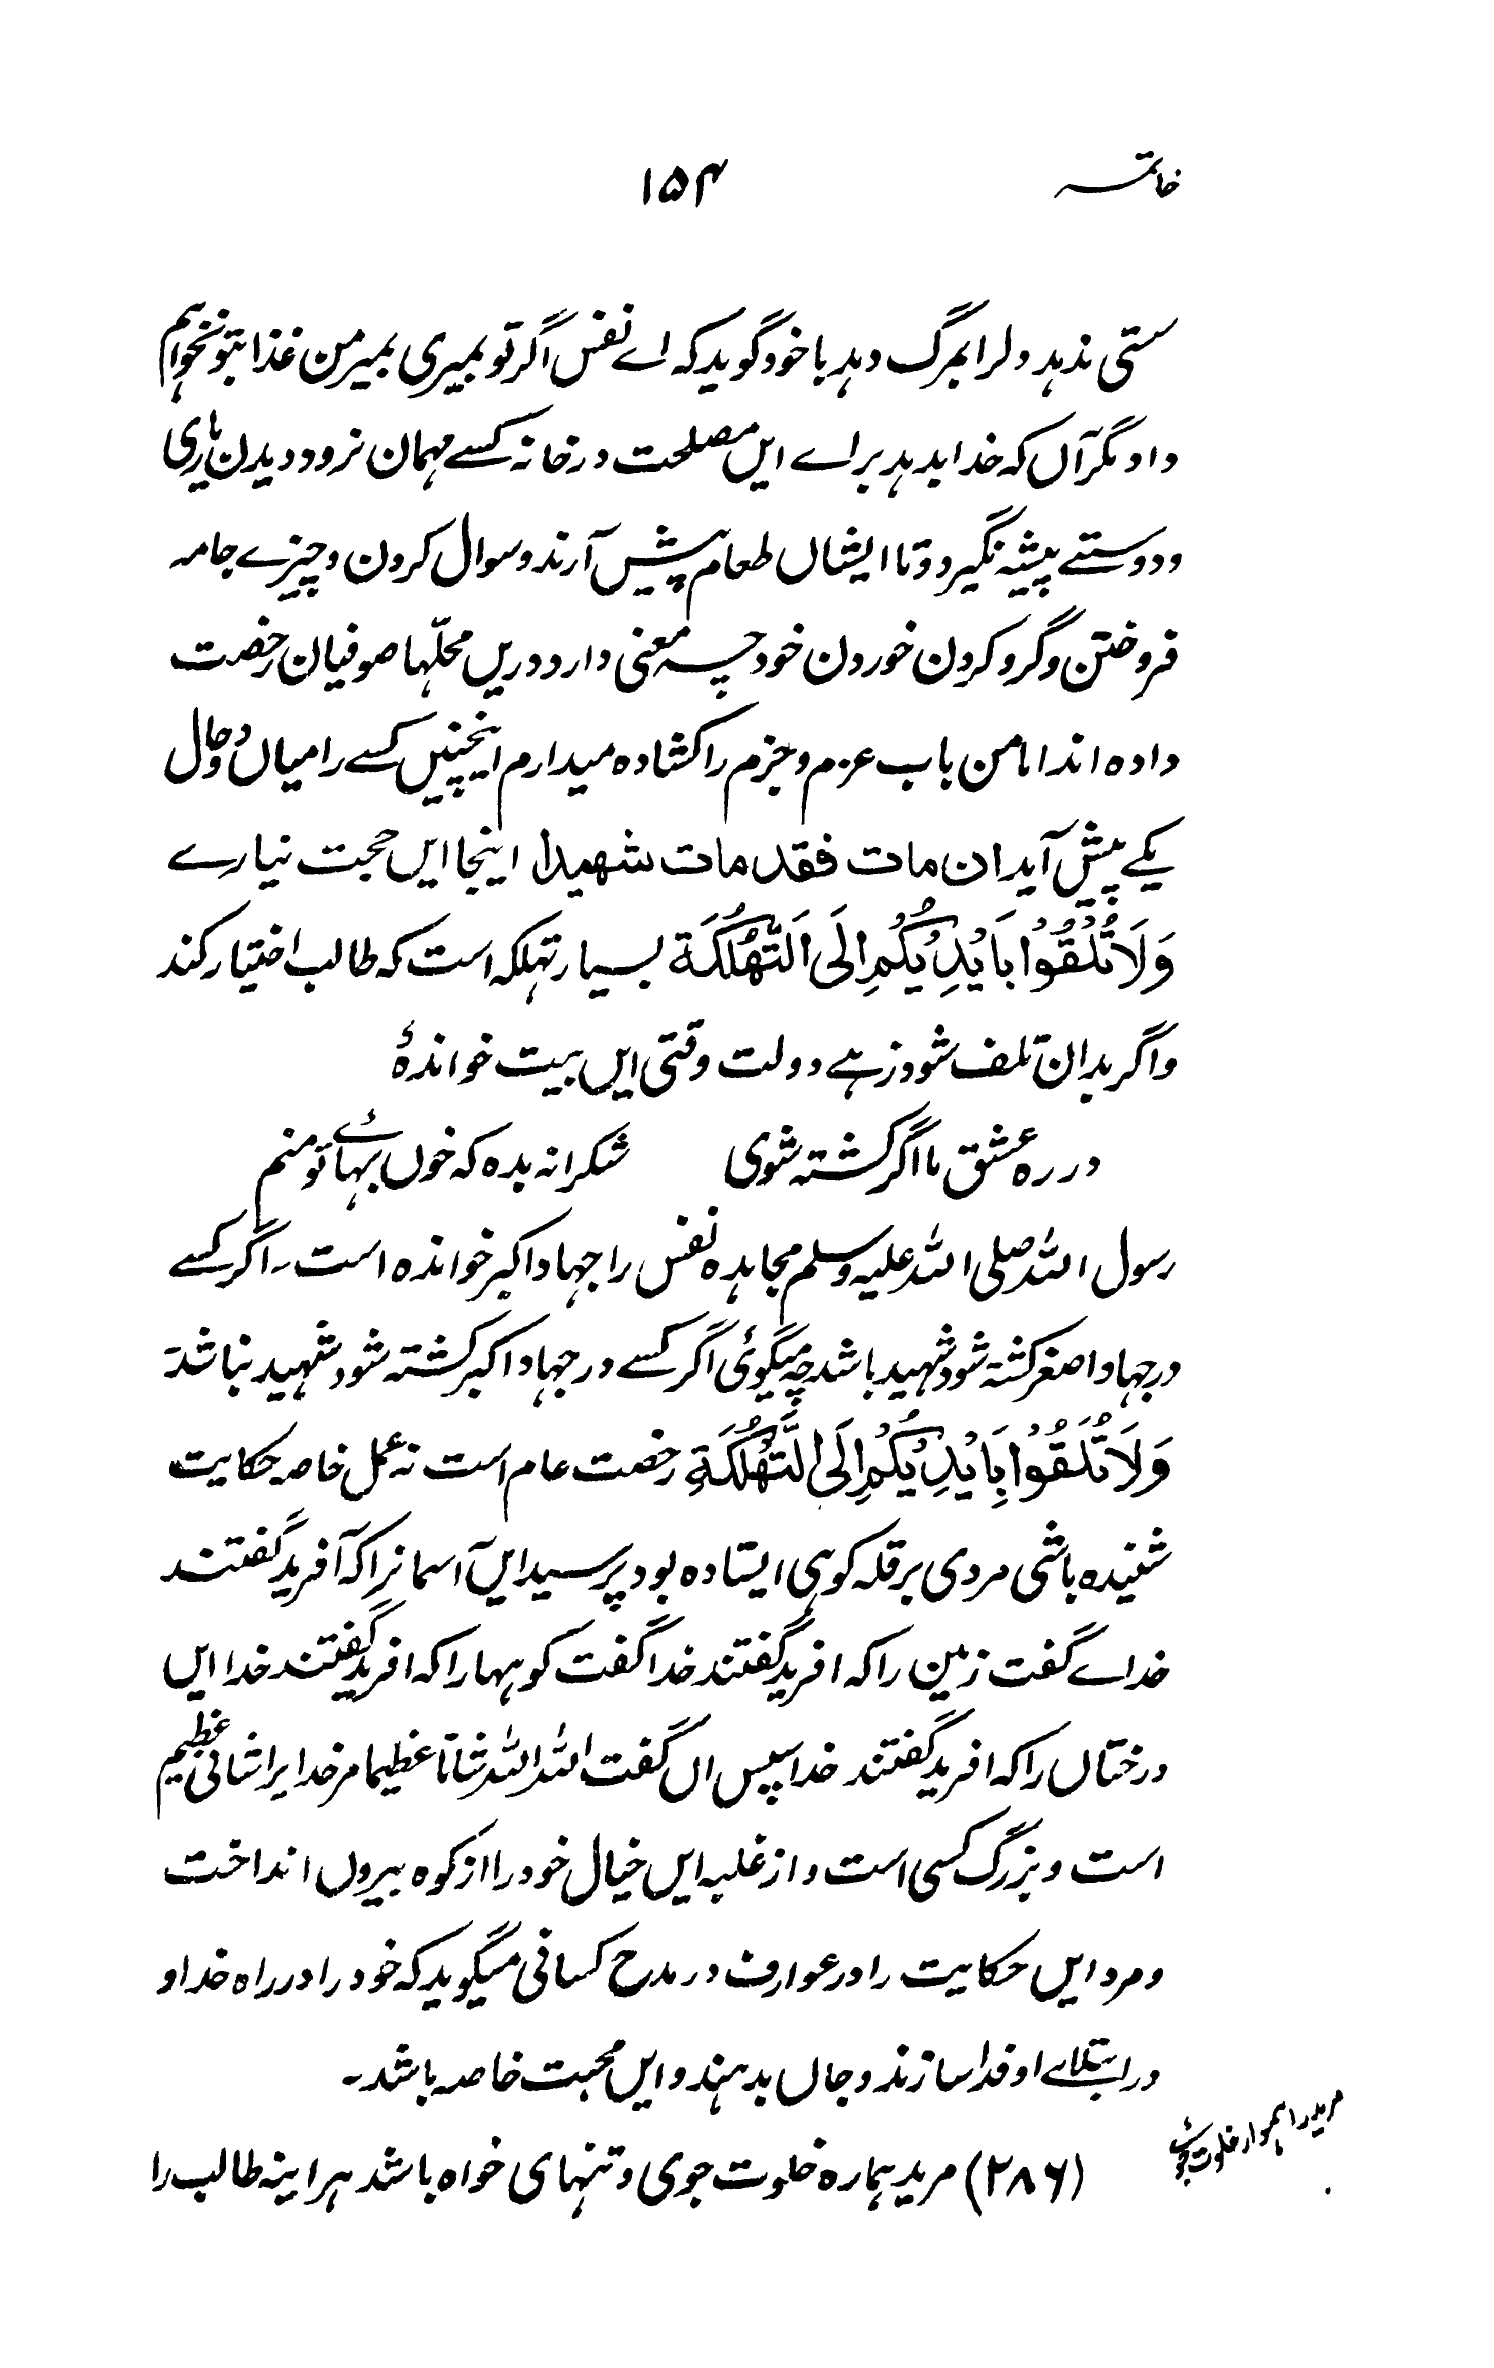 خاتمہ ۱۵۴
سستی ندہد و لرا بمرگ دہد با خود گوید کہ اے نفس اگر تو بمیری بمیر من غذا بتو نخواہم
داد مگر آں کہ خدا بدہد برائے ایں مصلحت در خانہ کسے مہمان نرود و دیدن یاری
و دوستے پیشہ نگیرد و تا ایشاں طعام پیش آرند و سوال کردن و چیزے جامہ
فروختن و گرو کردن خوردن خود چہ معنی دارد دریں محلّہا صوفیان رخصت
دادہ اند اما من باب عزم و جزم را کشادہ میدارم اینچنیں کسے را میاں دو حال
یکے پیش آید ان مات فقد مات شھیدا اینجا ایں حجت نیارے
وَلَا تُلْقُوْا بِاَیْدِیْکُمْ اِلَی التَّهْلُکَة بسیار تہلکہ است کہ طالب اختیار کند
و اگر بدان تلف شود زہے دولت وقتی ایں بیت خواندۂ
در رہ عشق ما اگر کشتہ شوی شکرانہ بدہ کہ خوں بہائے تو منم
رسول اللہ صلی اللہ علیہ وسلم مجاہدہ نفس را جہاد اکبر خواندہ است۔ اگر کسے
در جہاد اصغر کشتہ شود شہید باشد چہ میگوئی اگر کسے در جہاد اکبر کشتہ شود شہید نباشد
وَلَا تُلْقُوْا بِاَیْدِیْکُمْ اِلَی التَّهْلُکَةِ رخصت عام است نہ عمل خاصہ حکایت
شنیدہ باشی مردی بر قلہ کوہی ایستادہ بود پرسید ایں آسمانرا کہ آفرید گفتند
خداے گفت زمین را کہ افرید گفتند خدا گفت کوہہا را کہ افرید گفتند خدا ایں
درختاں را کہ افرید گفتند خدا سپس اں گفت اللہ اللہ شانا عظیما مر خدایرا شانی عظیم
است و بزرگ کسی است و از غلبہ ایں خیال خود را از کوہ بیروں انداخت
و مرد ایں حکایت را در عوارف در مدح کسانی میگوید کہ خود را در راہ خدا و
در ابتلاے او فدا سازند و جاں بدہند و ایں محبت خاصہ باشد۔
(۲۸۶) مرید ہمارہ خلوت جوی و تنہای خواہ باشد ہراینہ طالب را
مرید را ہموار خلوت